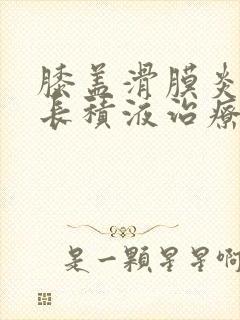 膝盖滑膜炎
長積液治療
是一顆星星啊